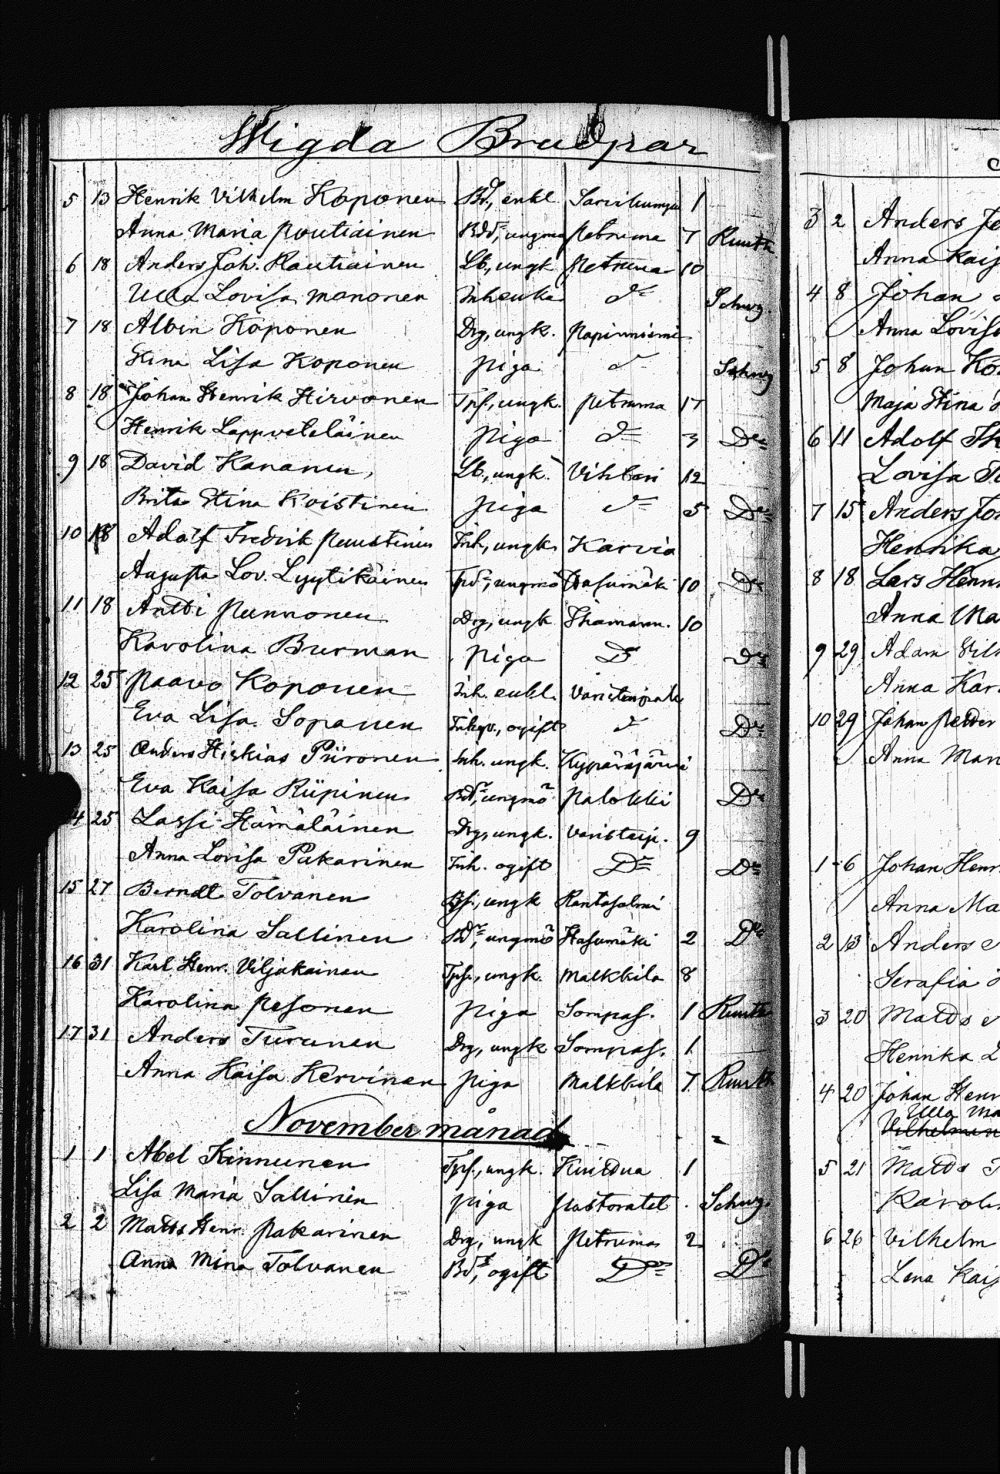 Wigda Brudpar
5 13 Henrik Vilhelm Koponen Bd, enkl Sarvikumpu 1
Anna Maria Poutiainen Bdd, ungmö Petruma 7 Ruuth
6 18 Anders Joh. Rautiainen Lb, ungk Petruma 10
Ulla Lovisa Manonen Inhenka do Schwg.
7 18 Albin Koponen Drg, ungk. Papinniemi
Stina Lisa Koponen piga do Schwg
8 18 Johan Henrik Hirvonen Tpf, ungk. Petruma 17
Henrik Lappveteläinen piga do 3 Do
9 18 David Kananen, Lb, ungk. Vihtari 12
Brita Stina Koistinen piga do 5 Do
10 18 Adolf Fredrik Puustinen Inh, ungk Karvio
Augusta Lov. Lyytikäinen Tpd, ungmö Hasumäki 10 Do
11 18 Antti Punnonen Drg, ungk 10
Karolina Burman piga Do Do
12 25 Paavo Koponen Inh. enkl. Varistaipale
Eva Lisa Sopanen ogift do Do
13 25 Anders Hiskias Piironen Inh. ungk. Kypäräjärvi
Eva Kaisa Riipinen Bd, ungmö Palokki Do
14 25 Lassi Hämäläinen Drg, ungk. Varistaip. 9
Anna Lovisa Pakarinen Inh. ogift Do Do
15 27 Berndt Tolvanen ungk Rantasalmi
Karolina Sallinen Bd, ungmö Hasumäki 2 Do
16 31 Karl Henr. Viljakainen Tpf, ungk. Malkkila 8
Karolina Pesonen piga Sompas. 1 Ruuth
17 31 Anders Turunen Drg, ungk Sompas. 1
Anna Kaisa Kervinen piga Malkkila 7 Ruuth
November månad
1 1 Abel Kinnunen Tpf, ungk. 1
Lisa Maria Sallinen piga Pastoratet Schwg.
2 2 Matts Henr. Pakarinen Drg, ungk Petruma 2
Anna Mina Tolvanen Bd, ogift Do Do
3 2 Anders
Anna Kaisa
4 8 Johan
Anna Lovisa
5 8 Johan
Maja Stina
6 11 Adolf
Lovisa
7 15 Anders
Henrika
8 18 Lars Henr
Anna Ma
9 29 Adam Vilh
Anna Kar
10 29 Johan Petter
Anna Mar
1 6 Johan Henr
Anna Ma
2 13 Anders
Serafia
3 20 Matts
Henrika
4 20 Johan Henr
Ulla Ma
Vilhelmina
5 21 Matts
Karoli
6 26 Vilhelm
Lena Kais